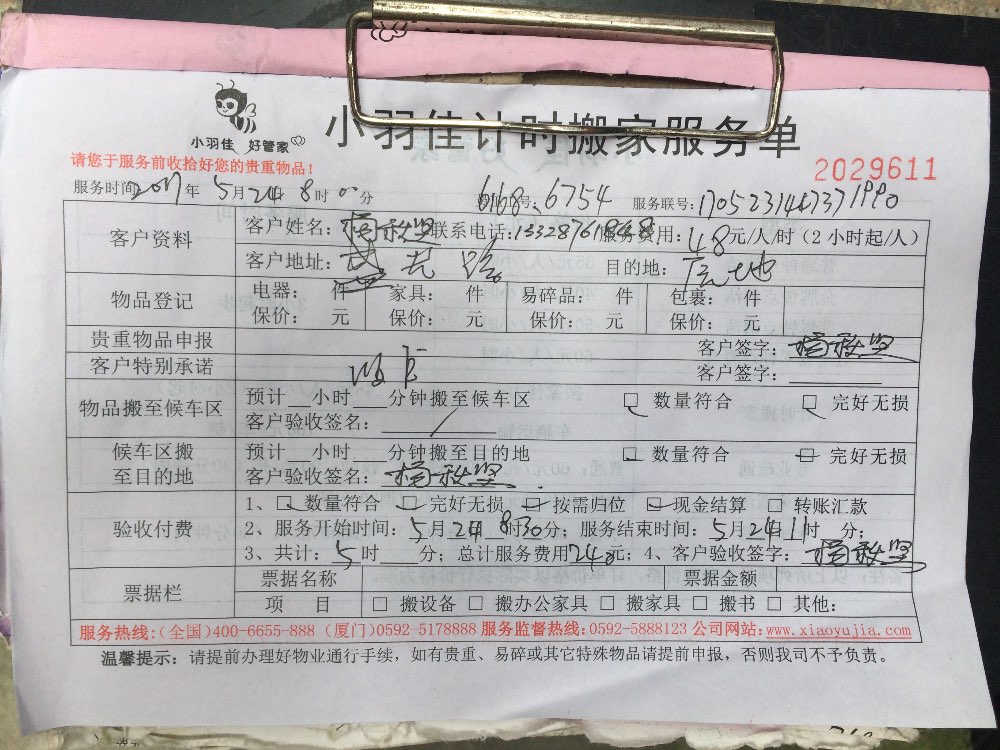 小羽佳 好管家
小羽佳计时搬家服务单
请您于服务前收拾好您的贵重物品!
2029611
服务时间 2017年 5月24 8时30分 号: 6168.6754 服务联号:
客户资料 客户姓名: 联系电话: 服务费用: 48元/人/时(2小时起/人)
客户地址: 路 目的地:
物品登记 电器: 件 家具: 件 易碎品: 件 包裹: 件
保价: 元 保价: 元 保价: 元 保价: 元
贵重物品申报 客户签字:
客户特别承诺 客户签字:
物品搬至候车区 预计 小时 分钟搬至候车区 □ 数量符合 □ 完好无损
客户验收签名:
候车区搬至目的地 预计 小时 分钟搬至目的地 □ 数量符合 □ 完好无损
客户验收签名:
验收付费 1、□ 数量符合 □ 完好无损 □ 按需归位 □ 现金结算 □ 转账汇款
2、服务开始时间: 5月24 8时30分; 服务结束时间: 5月24 11时 分;
3、共计: 5时 分; 总计服务费用740元; 4、客户验收签字:
票据栏 票据名称 票据金额
项 目 □ 搬设备 □ 搬办公家具 □ 搬家具 □ 搬书 □ 其他:
服务热线:(全国)400-6655-888 (厦门)0592-5178888 服务监督热线:0592-5888123 公司网站:www.xiaoyujia.com
温馨提示: 请提前办理好物业通行手续, 如有贵重、易碎或其它特殊物品请提前申报, 否则我司不予负责。